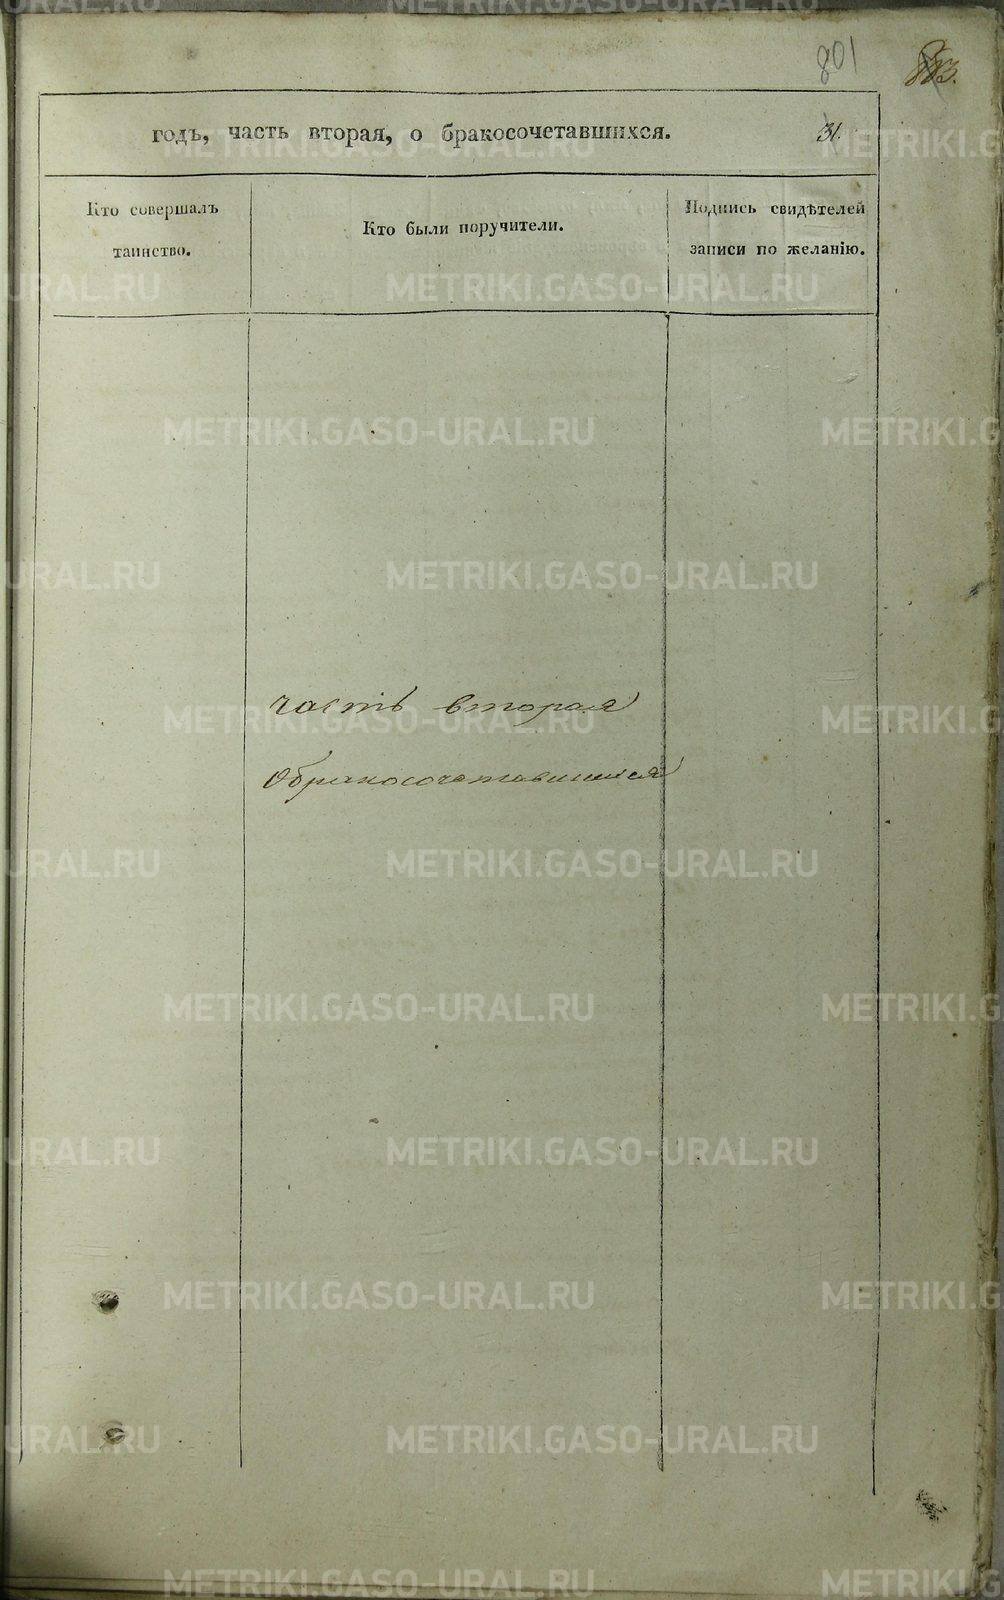 801
годъ, часть вторая, о бракосочетавшихся.
31.
Кто совершалъ
таинство.
Кто были поручители.
Подпись свидѣтелей
записи по желанію.
часть вторая
Обракосочетавшихся
METRIKI.GASO-URAL.RU